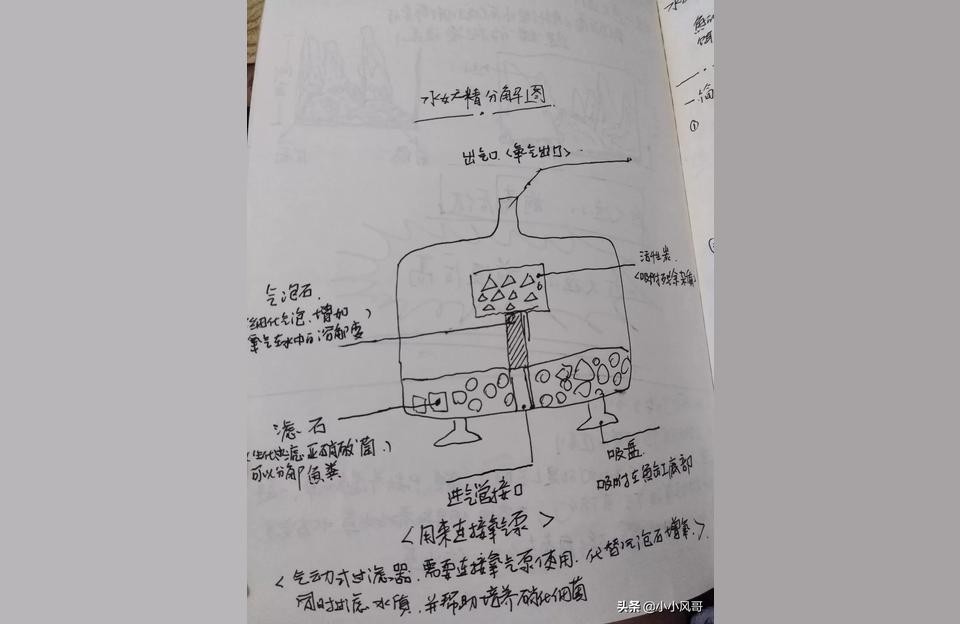 水妖精分解图
出气口<氧气出口>.
活性炭
<吸附残余杂质>
气泡石.
<细化气泡.增加
氧气在水中的溶解度>
滤石
可以分解鱼粪
吸盘
吸附在鱼缸底部
进气管接口
<用来连接氧气泵>
<气动式过滤器.需要连接氧气泵使用.代替气泡石增氧.>
同时过滤水质.并帮助培养硝化细菌
一.
①
头条 @小小风哥